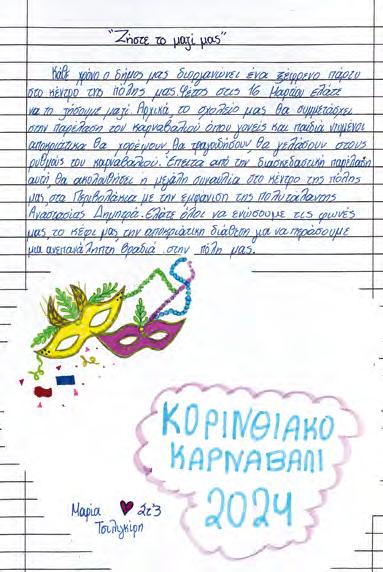 "Ζήστε το μαζί μας"
Κάθε χρόνο ο δήμος μας διοργανώνει ένα ξέφρενο πάρτυ
στο κέντρο της πόλης μας. Φέτος στις 16 Μαρτίου ελάτε
να το ζήσουμε μαζί. Αρχικά το σχολείο μας θα συμμετάσχει
στην παρέλαση του καρναβαλιού όπου γονείς και παιδιά ντυμένοι
αποκριάτικα θα χορέψουν θα τραγουδήσουν θα γελάσουν στους
ρυθμούς του καρναβαλιού. Έπειτα από την διασκεδαστική παρέλαση
αυτή, θα ακολουθήσει η μεγάλη συναυλία στο κέντρο της πόλης
μας στα Περιβολάκια με την εμφάνιση της πολυτάλαντης
Αναστασίας Δημητρά. Ελάτε όλοι να ενώσουμε τις φωνές
μας το κέφι μας την αποκριάτικη διάθεση για να περάσουμε
μια ανεπανάληπτη βραδιά στην πόλη μας.
ΚΟΡΙΝΘΙΑΚΟ
ΚΑΡΝΑΒΑΛΙ
2024
Μαρία Στ'3
Τσιλιγκίρη